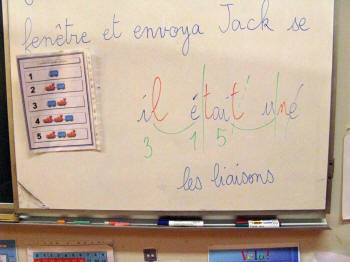 fenêtre et envoya Jack se
1
2
3
4
5
il était une
3 1 5
les liaisons